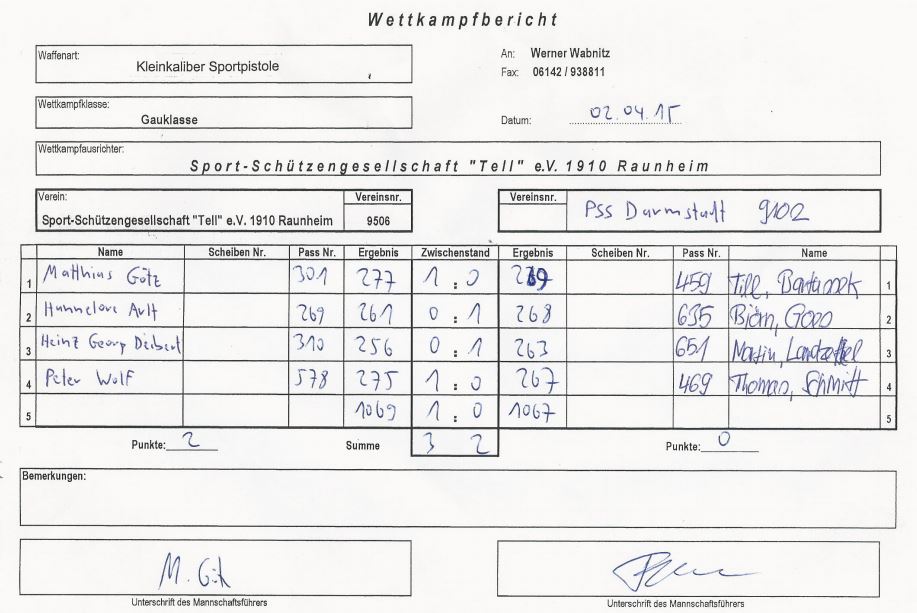 Wettkampfbericht
Waffenart:
Kleinkaliber Sportpistole
An: Werner Wabnitz
Fax: 06142 / 938811
Wettkampfklasse:
Gauklasse
Datum: 02.04.15
Wettkampfausrichter:
Sport-Schützengesellschaft "Tell" e.V. 1910 Raunheim
Verein: Vereinsnr. Vereinsnr.
Sport-Schützengesellschaft "Tell" e.V. 1910 Raunheim 9506 PSS Darmstadt 9102
Name Scheiben Nr. Pass Nr. Ergebnis Zwischenstand Ergebnis Scheiben Nr. Pass Nr. Name
1 Matthias Götz 301 277 1 : 0 269 459 Till, 1
2 Hannelore Ault 269 261 0 : 1 268 635 Björn, 2
3 Heinz Georg Deibert 310 256 0 : 1 263 651 Martin, 3
4 Peter Wolf 578 275 1 : 0 267 469 Thomas, Schmitt 4
5 1069 1 : 0 1067 5
Punkte: 2 Summe 3 2 Punkte: 0
Bemerkungen:
M. Götz
Unterschrift des Mannschaftsführers Unterschrift des Mannschaftsführers